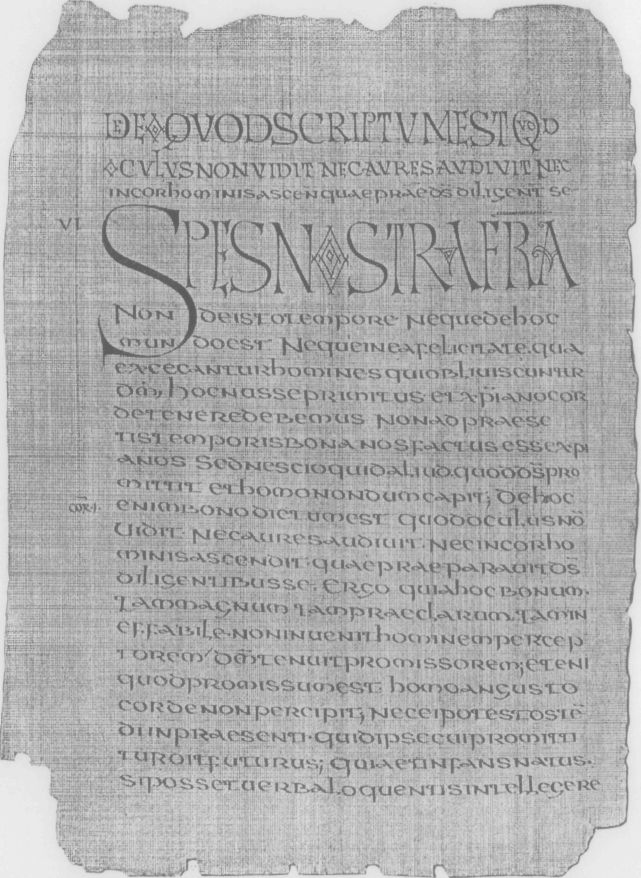 DE QUOD SCRIPTVM EST QVOD
OCVLVS NON VIDIT NEC AVRES AVDIVIT NEC
IN COR hominis ascen quae praep ds diligent se
VI
SPES NOSTRA FRA
NON de isto tempore neque de hoc
mundo est neque in ea felicitate qua
excecantur homines qui obliuiscuntur
dm, hoc nosse primitus et xpiano cor
de tenere debemus non ad praesen
tis temporis bona nos factus esse xpi
anos sed nescio quid aliud quod ds pro
mittit et homo nondum capit; de hoc
COR I.
enim bono dictum est quod oculus nō
uidit nec aures audiuit. nec in cor ho
minis ascendit quae praeparauit ds
diligentibus se. ergo quia hoc bonum.
tam magnum tam praeclarum. tam in
effabile. non inuenit hominem percep
torem, dm tenuit promissorem; eteni
quod promissum est homo angusto
corde non percipit; nec ei potest ostē
di in praesenti. quid ipse cui promitti
tur dit futurus; quia et infans natus.
si posset uerba loquentis intellegere